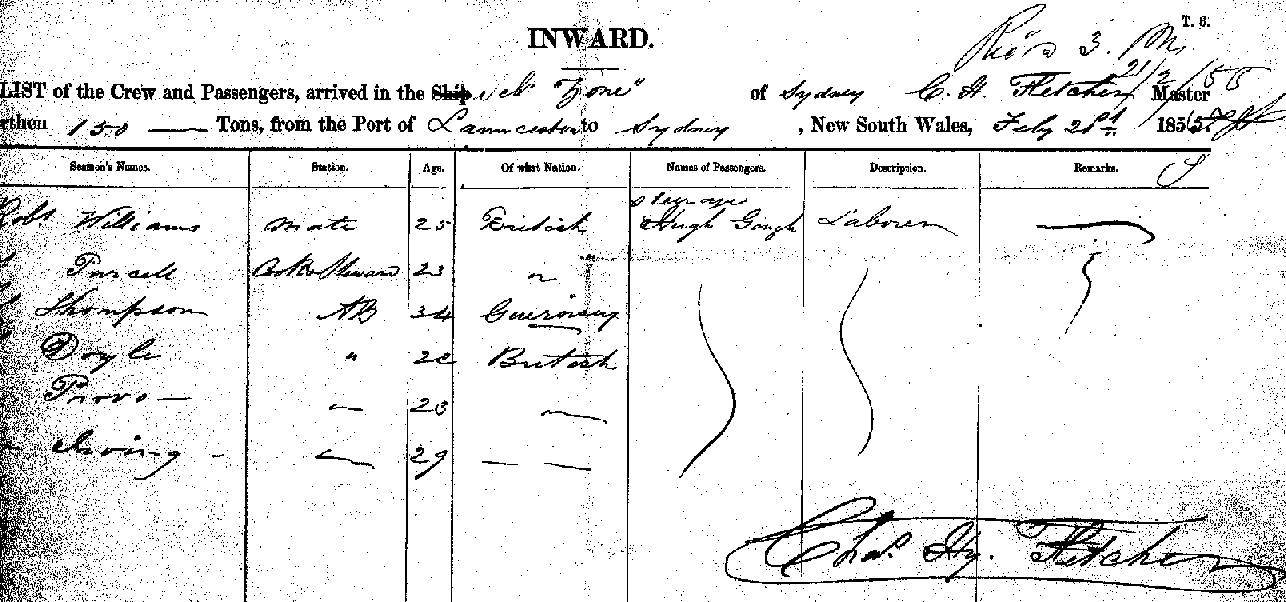 T. 6.
INWARD.
3. PM
21/2/55
LIST of the Crew and Passengers, arrived in the Ship "Zone" of Sydney C. H. Fletcher Master
rthen 150 — Tons, from the Port of Launceston to Sydney, New South Wales, Feby 21st 185
Seamen's Names. Station. Age. Of what Nation. Names of Passengers. Description. Remarks.
Steerage
Robt Williams Mate 25 British Hugh Gough Laborer —
Purcell Cook & Steward 23 "
Thompson AB 34 Guernsey
Doyle " British
Provo — — 23 —
— — 29 — —
Chas. Hy. Fletcher